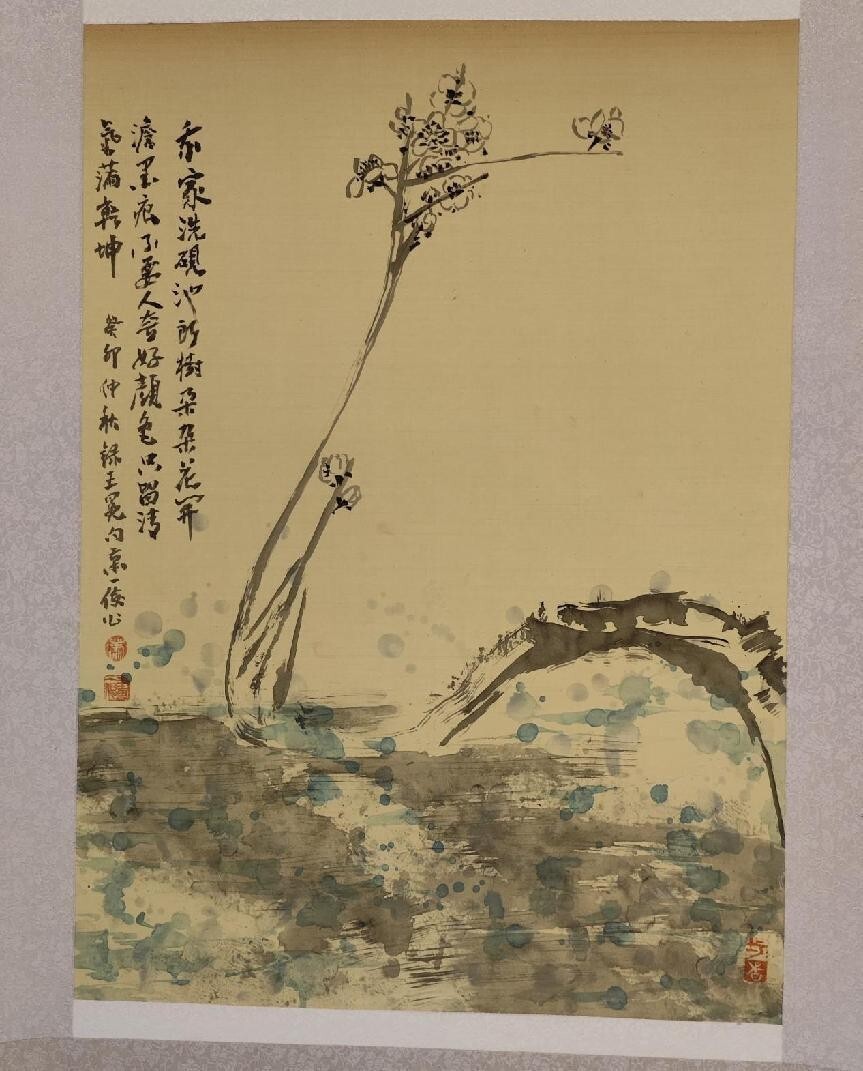 我家洗硯池頭樹朵朵花開
澹墨痕不要人夸好顏色只留清
氣滿乾坤
癸卯仲秋錄王冕句